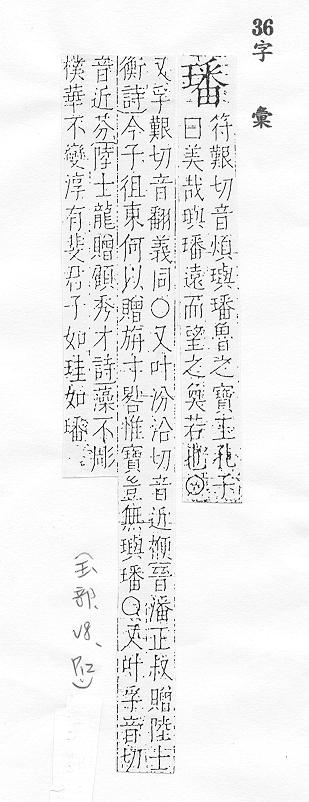 36
字彙
璠
符艱切音煩璵璠魯之寶玉孔子
曰美哉璵璠遠而望之奐若也○
又孚艱切音翻義同○又叶汾沿切音近晉潘正叔贈陸士
衡詩今子徂東何以贈旃寸晷惟寶豈無璵璠○又叶孚音切
音近芬陸士龍贈顧秀才詩藻不彫
樸華不變淳有斐君子如珪如璠
(玉部、V8、P12)